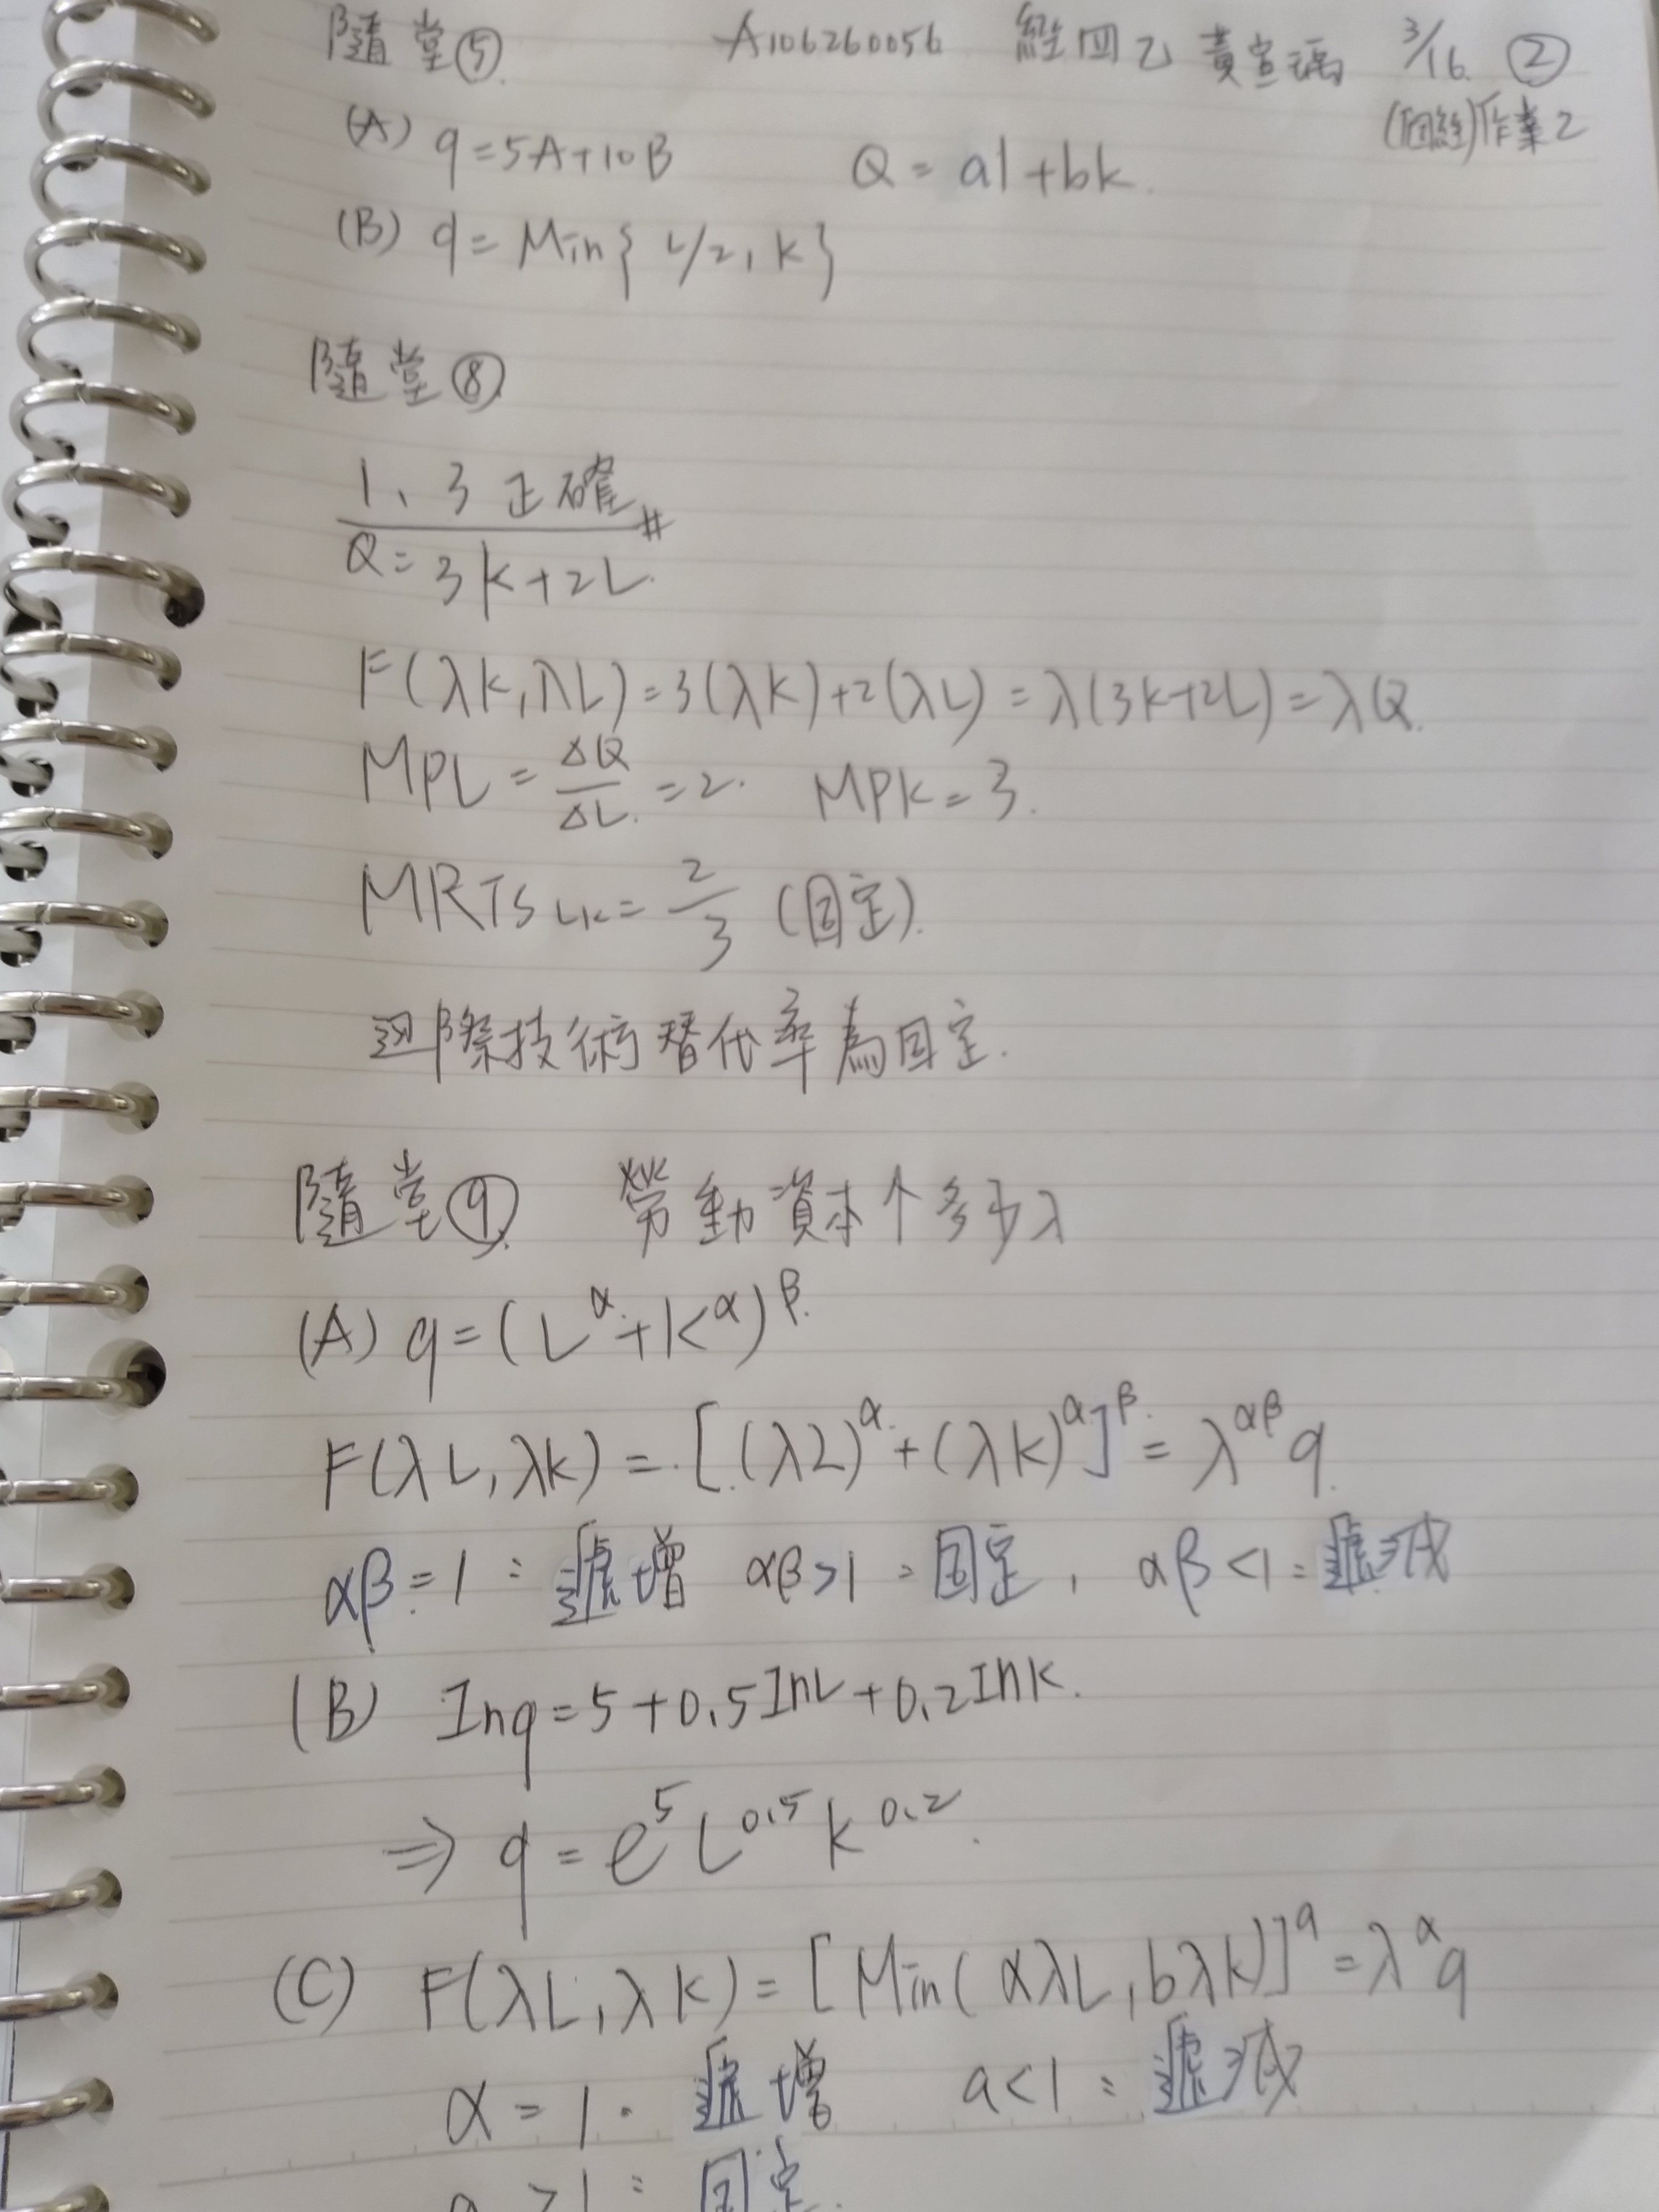 隨堂⑤ A106260056 經四乙 黃宣瑀 3/16 ②
(個經)作業2
(A) q=5A+10B Q=al+bk.
(B) q=Min{L/2,K}
隨堂⑧
1、3正確#
Q=3K+2L.
F(λK,λL)=3(λK)+2(λL)=λ(3K+2L)=λQ.
MPL=ΔQ/ΔL=2. MPK=3.
MRTS LK=2/3 (固定).
邊際技術替代率為固定.
隨堂⑨ 勞動資本个多少λ
(A) q=(L^α+K^α)^β.
F(λL,λK)=[(λL)^α+(λK)^α]^β=λ^αβ q.
αβ=1:遞增 αβ>1:固定, αβ<1:遞減
(B) Inq=5+0.5InL+0.2InK.
⇒ q=e^5 L^0.5 K^0.2.
(C) F(λL,λK)=[Min(αλL,bλK)]^a=λ^α q
α=1. 遞增 a<1:遞減
a>1:固定.